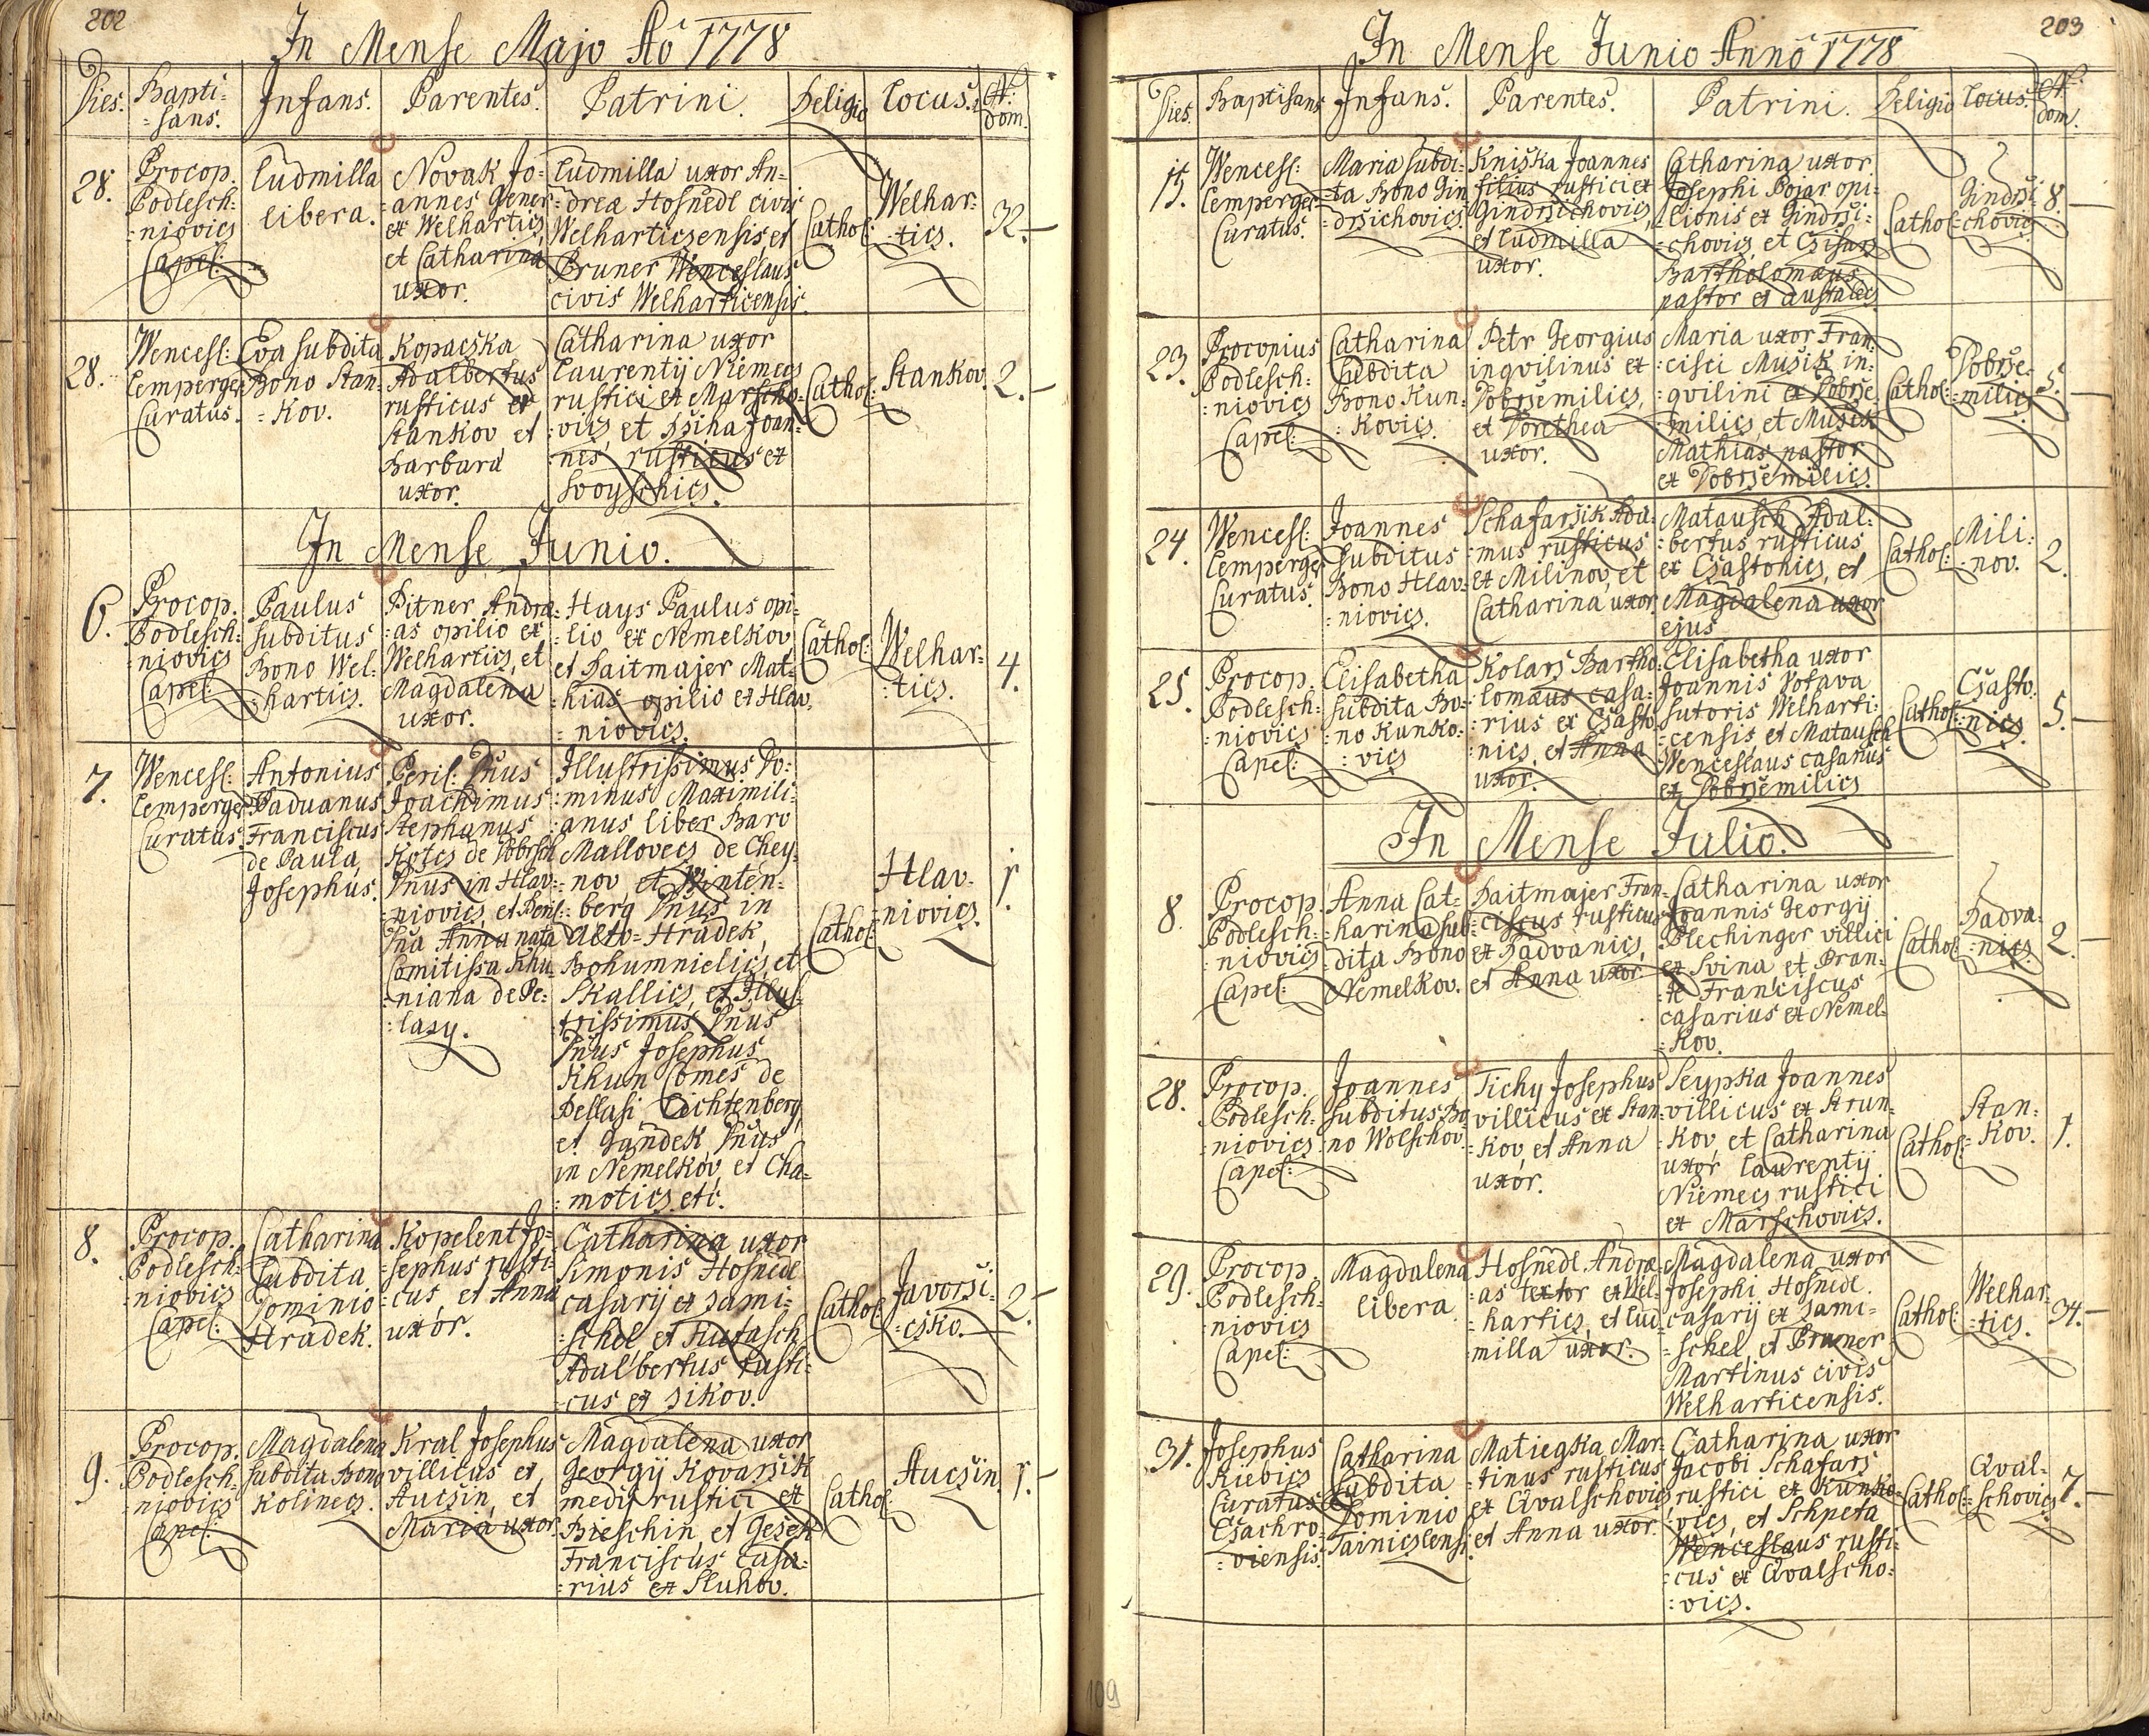 202
In Mense Majo Ao 1778
Dies.
Bapti-
=sans.
Infans.
Parentes.
Patrini.
Religio
Locus.
N:
dom.
28.
Procop.
Podlesch=
=niovics
Capel:
Ludmilla
libera.
Novak Jo=
=annes Gener
ex Welhartics,
et Catharina
uxor.
Ludmilla uxor An=
=dreæ Hosnedl civis
Welharticzensis, et
Pruner Wenceslaus
civis Welharticensis.
Cathol:
Welhar=
=tics.
32.
28.
Wencesl:
Lemperger
Curatus.
Eva subdita
Bono Stan=
=kov.
Kopacska
Adalbertus
rusticus ex
Stankov et
Barbara
uxor.
Catharina uxor
Laurentij Niemecs
rustici ex Marscho=
=vics, et Rziha Joan=
=nes rusticus ex
Svoyschics.
Cathol:
Stankov.
2.
In Mense Junio.
6.
Procop.
Podlesch=
=niovics
Capel:
Paulus
subditus
Bono Wel=
=hartics.
Pitner Andræ=
=as opilio ex
Welhartics, et
Magdalena
uxor.
Hays Paulus opi=
=lio ex Nemelkov,
et Haitmajer Mat=
=hias opilio ex Hlav=
=niovics.
Cathol:
Welhar=
=tics.
4.
7.
Wencesl:
Lemperger
Curatus.
Antonius
Paduanus
Franciscus
de Paula,
Josephus.
Peril: Dnus
Joachimus
Stephanus
Kotcs de Dobrsch
Dnus in Hlav=
=niovics, et Peril:
Dna Anna nata
Comitissa Khu=
=niana de Pe=
=lasy.
Illustrissimus Do=
=minus Maximili=
=anus liber Baro
Mallovecs de Chey=
=nov et Winten=
=berg Dnus in
Alto=Hradek,
Bohumnielics, et
Skallics, et Illus=
trissimus Dnus
Dnus Josephus
Khun Comes de
Bellasi Lichtenberg,
et Gandek Dnus
in Nemelkov, et Cha=
=motics etc.
Cathol:
Hlav=
=niovics.
1.
8.
Procop.
Podlesch=
=niovics
Capel:
Catharina
subdita
Dominio
Hradek.
Kopelent Jo=
=sephus rusti=
=cus, et Anna
uxor.
Catharina uxor
Simonis Hosnedl
casarij ex Sami=
=schel et Hutasch
Adalbertus rusti=
=cus ex Sikov.
Cathol:
Javorsi=
=csko.
2.
9.
Procop.
Podlesch=
=niovics
Capel:
Magdalena
subdita Bono
Kolinecs.
Kral Josephus
villicus ex
Aucsin, et
Maria uxor
Magdalena uxor
Georgij Kovarsik
medij rustici ex
Bieschin, et Gesek
Franciscus casa=
=rius ex Sluhov.
Cathol:
Aucsin.
1.
203
In Mense Junio Anno 1778
Dies.
Baptisans
Infans.
Parentes.
Patrini.
Religio
Locus.
N:
dom.
15.
Wencesl:
Lemperger
Curatus.
Maria subdi=
=ta Bono Gin
=drsichovics.
Kniska Joannes
filius rustici ex
Gindrsichovics,
et Ludmilla
uxor.
Catharina uxor
Josephi Bojar opi=
=lionis ex Gindrsi=
=chovics, et Csisars
Bartholomæus
pastor ex Austalecs
Cathol:
Gindrsi=
=chovics.
8.
23.
Procopius
Podlesch=
=niovics
Capel:
Catharina
subdita
Bono Kun=
=kovics.
Petr Georgius
inqvilinus ex
Dobrsemilics,
et Dorothea
uxor.
Maria uxor Fran=
=cisci Musik in=
=qvilini ex Dobrse=
=milics, et Musik
Mathias pastor
ex Dobrsemilics.
Cathol:
Dobrse=
=milics.
5.
24.
Wencesl:
Lemperger
Curatus.
Joannes
subditus
Bono Hlav=
=niovics.
Schafarsik Ada=
=mus rusticus
ex Milinov, et
Catharina uxor
Matausch Adal=
=bertus rusticus
ex Csastonics, et
Magdalena uxor
ejus
Cathol:
Mili=
=nov.
2.
25.
Procop.
Podlesch=
=niovics
Capel:
Elisabetha
subdita Bo=
=no Kunko=
=vics
Kolars Bartho=
=lomæus casa=
=rius ex Csasto
=nics, et Anna
uxor.
Elisabetha uxor
Joannis Votava
sutoris Welharti=
=censis, et Matausch
Wenceslaus casarius
ex Dobrsemilics
Cathol:
Csasto=
=nics.
5.
In Mense Julio.
8.
Procop.
Podlesch=
=niovics
Capel:
Anna Cat=
=harina sub=
=dita Bono
Nemelkov.
Haitmajer Fran=
=ciscus rusticus
ex Radvanics,
et Anna uxor.
Catharina uxor
Joannis Georgij
Plechinger villici
ex Svina, et Bran=
=tl Franciscus
casarius ex Nemel=
=kov.
Cathol:
Radva=
=nics.
2.
28.
Procop.
Podlesch=
=niovics
Capel:
Joannes
subditus Bo
no Wolschov.
Tichy Josephus
villicus ex Stan=
=kov, et Anna
uxor.
Seypka Joannes
villicus ex Strun=
=kov, et Catharina
uxor Laurentij
Niemecs rustici
ex Marschovics.
Cathol:
Stan=
=kov.
1.
29.
Procop.
Podlesch=
=niovics
Capel:
Magdalena
libera
Hosnedl Andræ=
=as textor ex Wel=
=hartics, et Lud=
=milla uxor.
Magdalena uxor
Josephi Hosnedl
casarij ex Sami=
=schel, et Pruner
Martinus civis
Welharticensis.
Cathol:
Welhar=
=tics.
34.
31.
Josephus
Kiebics
Curatus
Csachro=
=viensis.
Catharina
subdita
Dominio
Tainicslensi
Matiegka Mar=
=tinus rusticus
ex Qvalschovics
et Anna uxor.
Catharina uxor
Jacobi Schafars
rustici ex Kunko=
=vics, et Schpeta
Wenceslaus rusti=
=cus ex Qvalscho=
=vics.
Cathol:
Qval=
=schovics.
7.
109